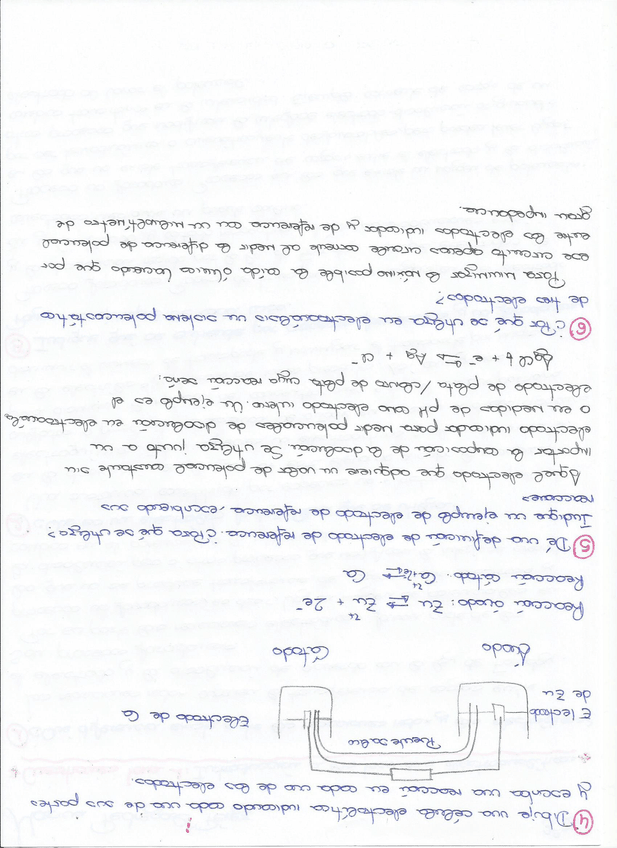 4. Dibuje una célula electrolítica indicando cada una de sus partes
y escriba una reacción en cada uno de los electrodos.
Puente salino
Electrodo
de Zn
Electrodo de Co
Ánodo
Cátodo
Reacción ánodo: Zn ⇌ Zn²⁺ + 2e⁻
Reacción cátod.
5. Dé una definición de electrodo de referencia. ¿Para qué se utiliza?
Indique un ejemplo de electrodo de referencia, escribiendo sus
reacciones
Aquel electrodo que adquiere un valor de potencial constante sin
importar la composición de la disolución. Se utiliza junto a un
electrodo indicador para medir potenciales de disolución en electroanálisis
o en medidas de pH como electrodo interno. Un ejemplo es el
electrodo de plata / cloruro de plata cuya reacción será:
AgCl + e⁻ ⇌ Ag + Cl⁻
6. ¿Por qué se utiliza en electroanálisis un sistema potenciostático
de tres electrodos?
Para minimizar lo máximo posible la caída óhmica haciendo que por
ese circuito apenas circule corriente al medir la diferencia de potencial
entre los electrodos indicador y de referencia con un milivoltímetro de
gran impedancia.